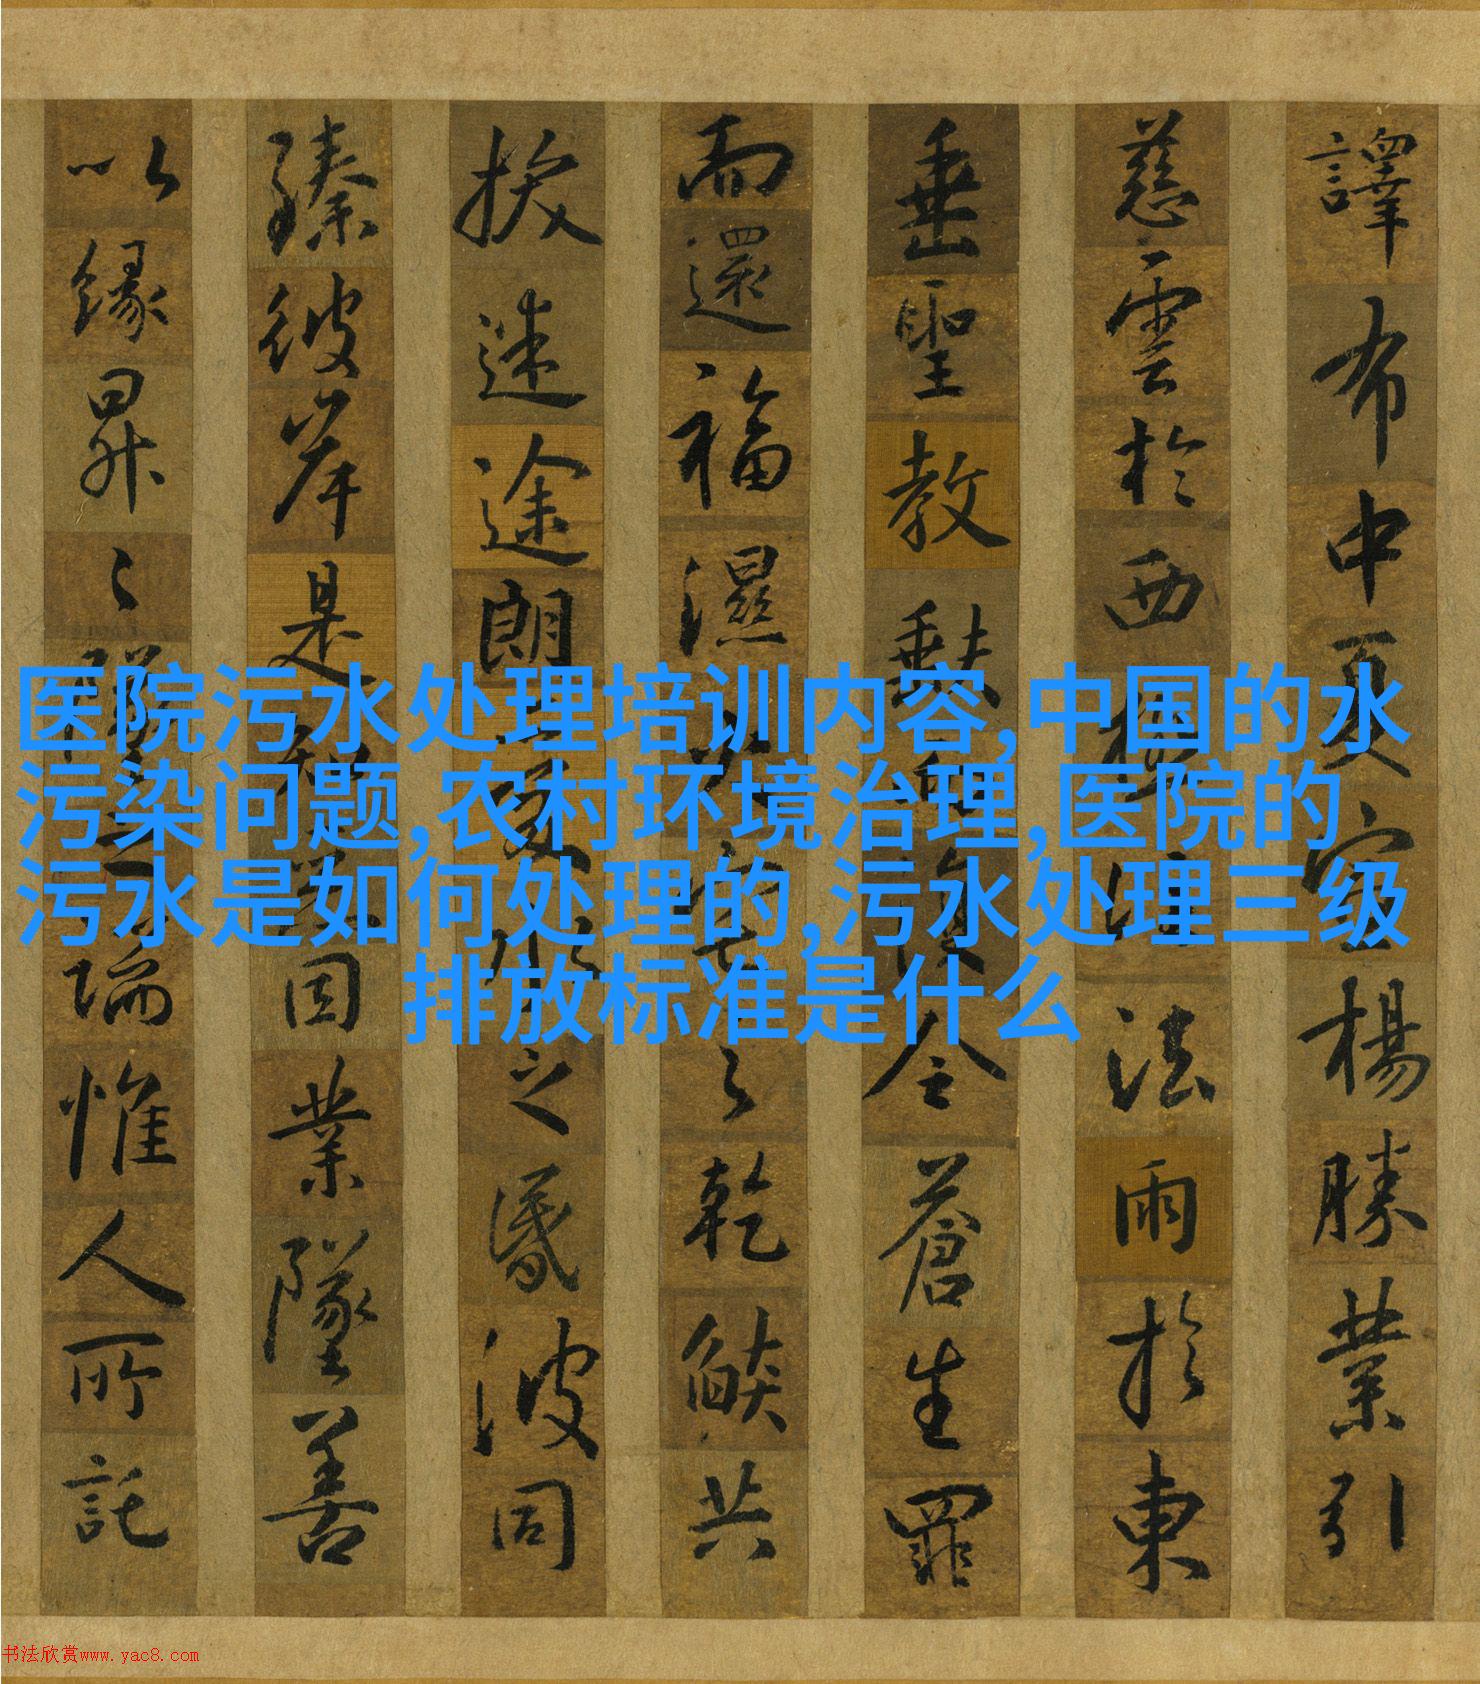 譯布中夏宣楊勝業引
慈雲於西極注法雨於東
垂聖教缺而復全蒼生罪
而還福濕火宅之乾焰共
拔迷途朗愛水之昏波同
臻彼岸是知惡因業墜善
以緣昇々墜之端惟人所託
医院污水处理培训内容,中国的水
污染问题,农村环境治理,医院的
污水是如何处理的,污水处理三级
排放标准是什么
书法欣赏www.yac8.com